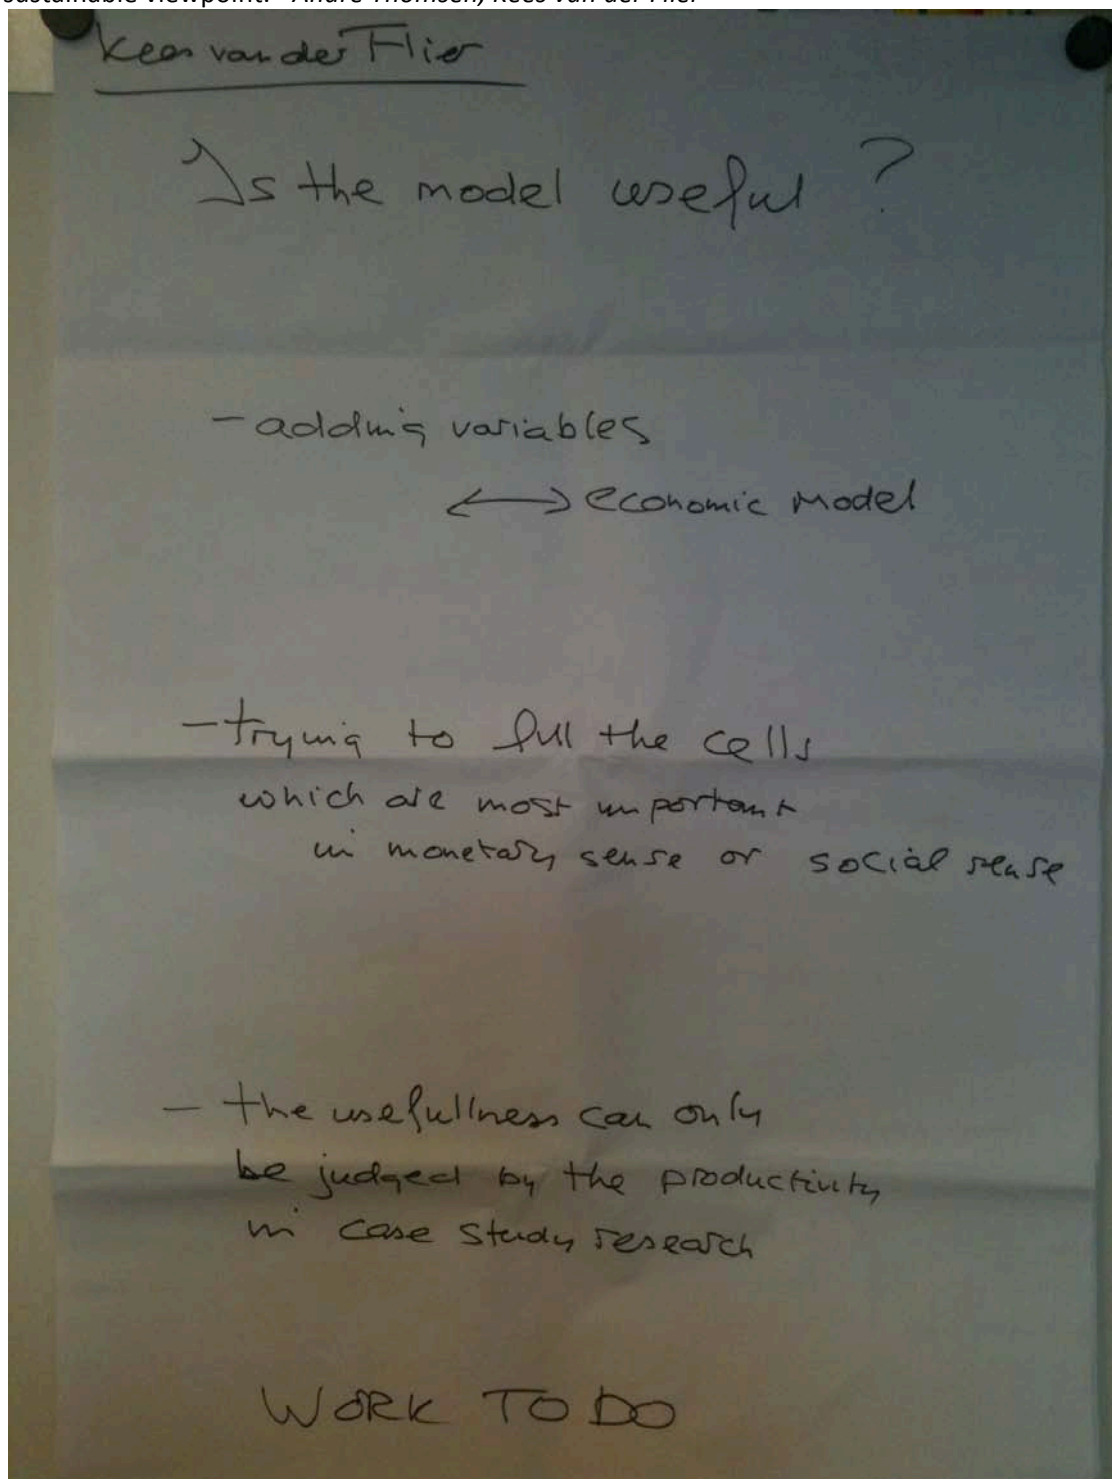 sustainable viewpoint. - André Thomsen, Kees van der Flier
Kees van der Flier
Is the model useful ?
- adding variables
<-> economic model
- trying to full the cells
which are most important
in monetary sense or social sense
- the usefullness can only
be judged by the productivity
in case study research
WORK TO DO